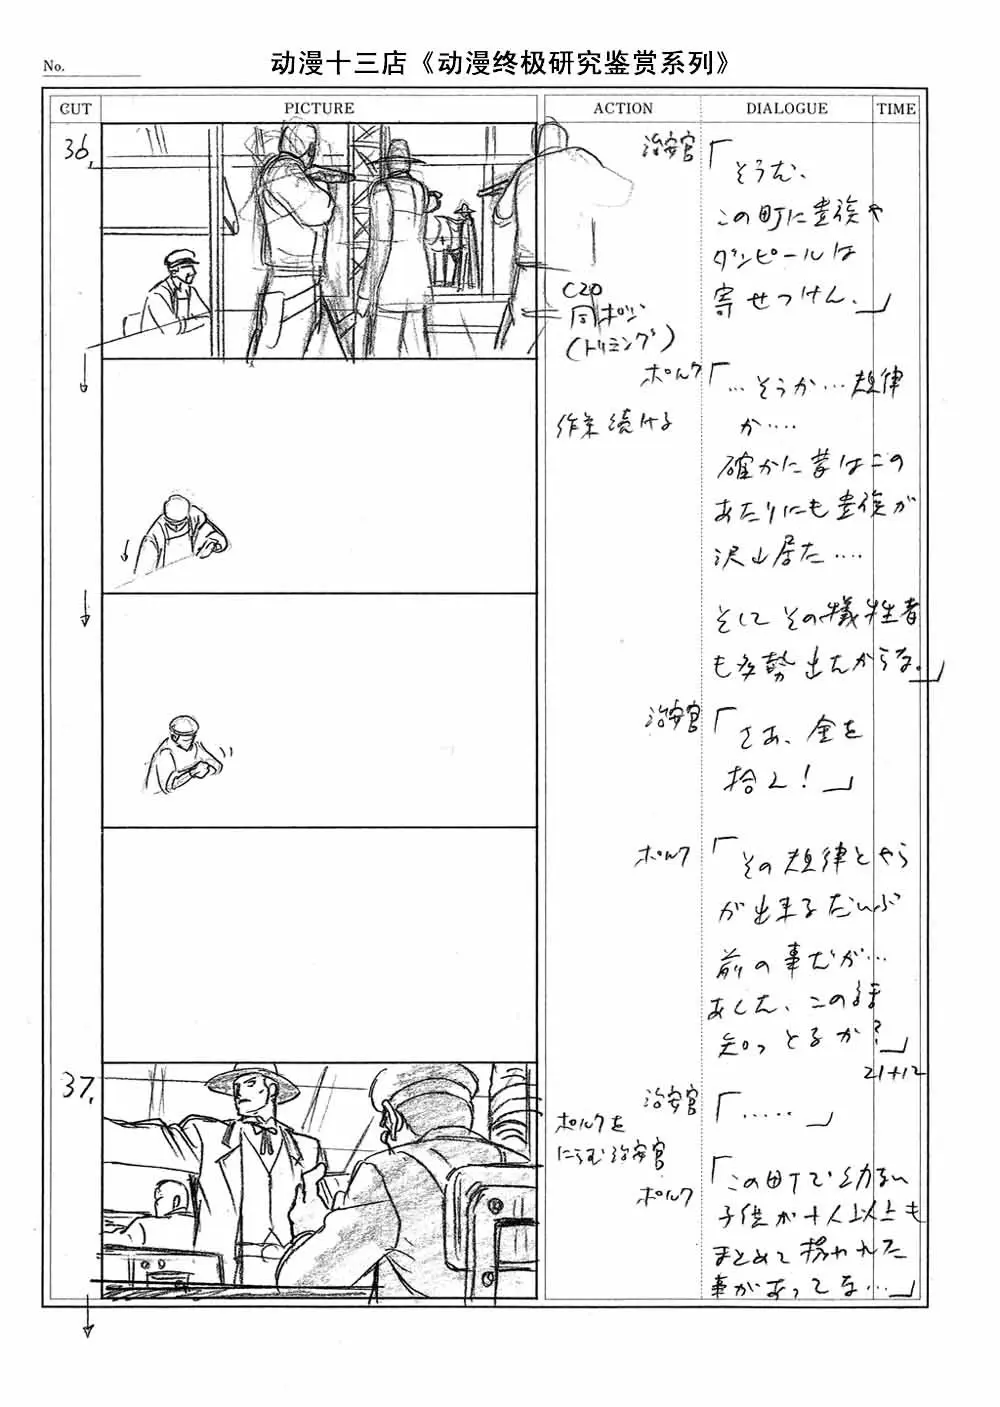 No.
动漫十三店《动漫终极研究鉴赏系列》
CUT PICTURE ACTION DIALOGUE TIME
36.
治安官
「そうだ、
この町に貴族や
ダンピールは
寄せつけん。」
C20
同ポジ
(トリミング)
ポルク
「…そうか…規律
か….
作業続ける
確かに昔はこの
あたりにも貴族が
沢山居た….
そして その犠牲者
も多勢出たからな。」
治安官
「さあ、金を
拾え!」
ポルク
「その規律とやら
が出来るだいぶ
前の事だが…
あんた、この話
知っとるか?」
21+12
37.
治安官
「…..」
ポルクを
にらむ治安官
ポルク
「この町で幼い
子供が十人以上も
まとめて拐われた
事があってな…」